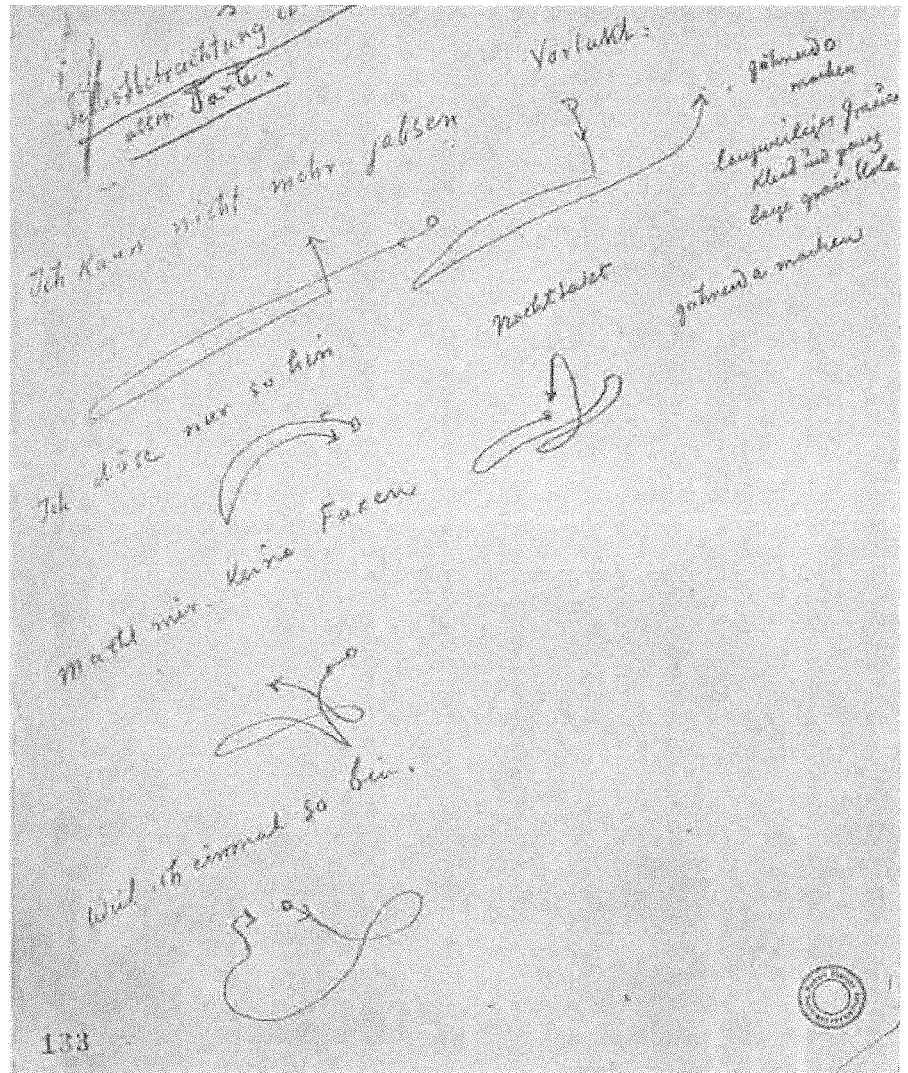 Selbstbetrachtung
alten Tante.
Vortakt:
gähnend o
machen
langweiliges graues
Kleid und ganz
lange graue
Ich kann nicht mehr jabsen
gähnend a machen
Nachttakt
Ich döse nur so hin
Macht mir keine Faxen
Weil ich einmal so bin.
133